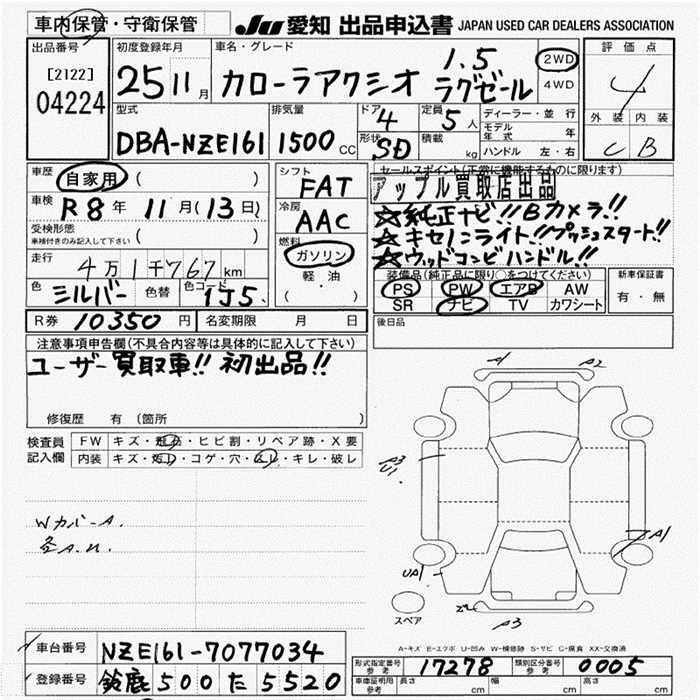 車内保管・守衛保管
JU 愛知 出品申込書 JAPAN USED CAR DEALERS ASSOCIATION
出品番号
[2122]
04224
初度登録年月
25 11月
車名・グレード
カローラアクシオ 1.5 ラグゼール
2WD
4WD
評価点
4
外装 内装
C B
型式
DBA-NZE161
排気量
1500 CC
ドア 4
形状 SD
定員 5人
積載 kg
ディーラー・並行
モデル年式 年
ハンドル 左・右
車歴 自家用 ( )
車検 R8年 11月(13日)
受検形態
車検付きのみ記入して下さい ( )
走行 4万1千767km
色 シルバー 色替 色コード 1J5
シフト FAT
冷房 AAC
燃料 ガソリン
軽・油
( )
セールスポイント(正常に機能するものに限ります)
アップル買取店出品
☆純正ナビ!!Bカメラ!!
☆キセノンライト!!プッシュスタート!!
☆ウッドコンビハンドル!!
装備品(純正品に限り○をつけてください)
PS PW エアB AW
SR ナビ TV カワシート
新車保証書
有・無
後日品
R券 10350円 名変期限 月 日
注意事項申告欄(不具合内容等は具体的に記入して下さい)
ユーザー買取車!! 初出品!!
修復歴 有 (箇所 )
検査員記入欄
FW キズ・飛石・ヒビ割・リペア跡・X要
内装 キズ・汚レ・コゲ・穴・スレ・キレ・破レ
WカバーA.
各A.U.
A
A2
A3
U1
A1
UA1
A3
スペア
A-キズ E-エクボ U-凹み W-補修跡 S-サビ C-腐食 XX-交換済
車台番号 NZE161-7077034
登録番号 鈴鹿 500 た 5520
形式指定番号 参考 17278
類別区分番号 参考 0005
車庫証明用 参考 長さ cm 幅 cm 高さ cm